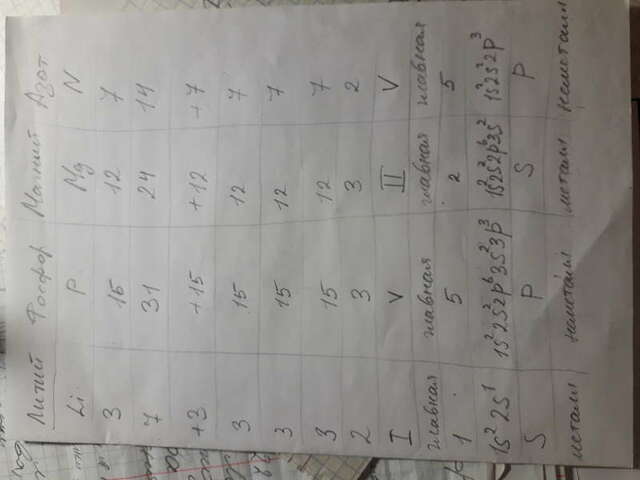 Литий Фосфор Магний Азот
Li P Mg N
3 15 12 7
7 31 24 14
+3 +15 +12 +7
3 15 12 7
3 15 12 7
3 15 12 7
2 3 3 2
I V II V
главная главная главная главная
1 5 2 5
1s² 2s¹ 1s²2s²2p⁶3s²3p³ 1s²2s²2p⁶3s² 1s²2s²2p³
S P S P
металл неметалл металл неметалл